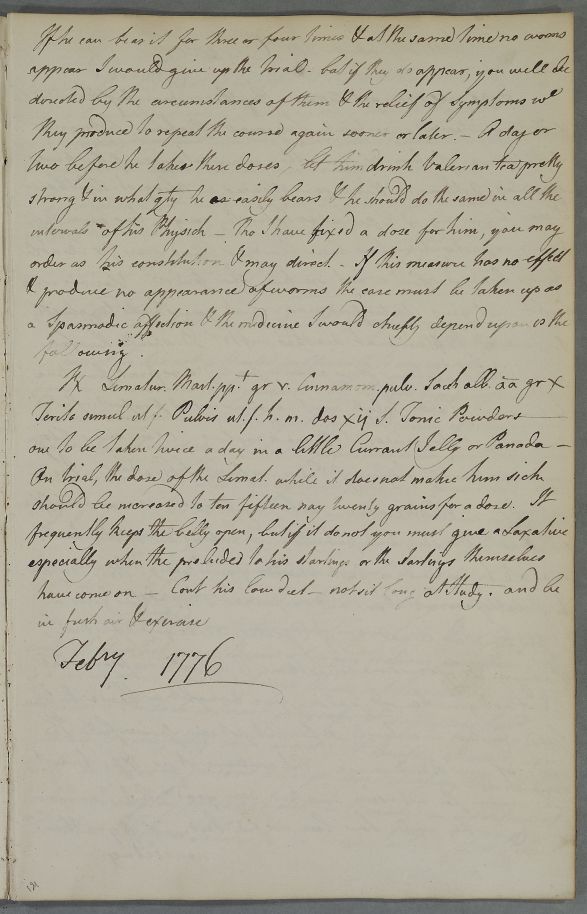 If he can bear it for three or four times & at the same time no worms
appear I would give up the trial - but if they do appear, you will be
directed by the circumstances of them & the relief of Symptoms wch
they produce to repeat the course again sooner or later. - A day or
two before he takes these doses let him drink Valerian tea pretty
strong & in what qty he as easily bears & he should do the same in all the
intervals of his Physick - Tho I have fixed a dose for him, you may
order as his constitution & may direct - If this measure has no effect
& produce no appearance of worms the case must be taken up as
a Spasmodic affection & the medicine I would chiefly depend upon is the
following.
Rx Limatur. Mart. ppt. gr v. Cinnamom. pulv. Sach alb. āā gr x
Terito simul ut f. Pulvis ut. f. h. m. dos xij S. Tonic Powders
one to be taken twice a day in a little Currant Jelly or Panada -
On trial, the dose of the Limat. while it does not make him sick
should be increased to ten fifteen nay twenty grains for a dose. It
frequently keeps the belly open, but if it do not you must give a Laxative
especially when the preludes to his startings or the startings themselves
have come on - Cont his low diet - not sit long at Study. and be
in fresh air & exercise
Febry 1776
191